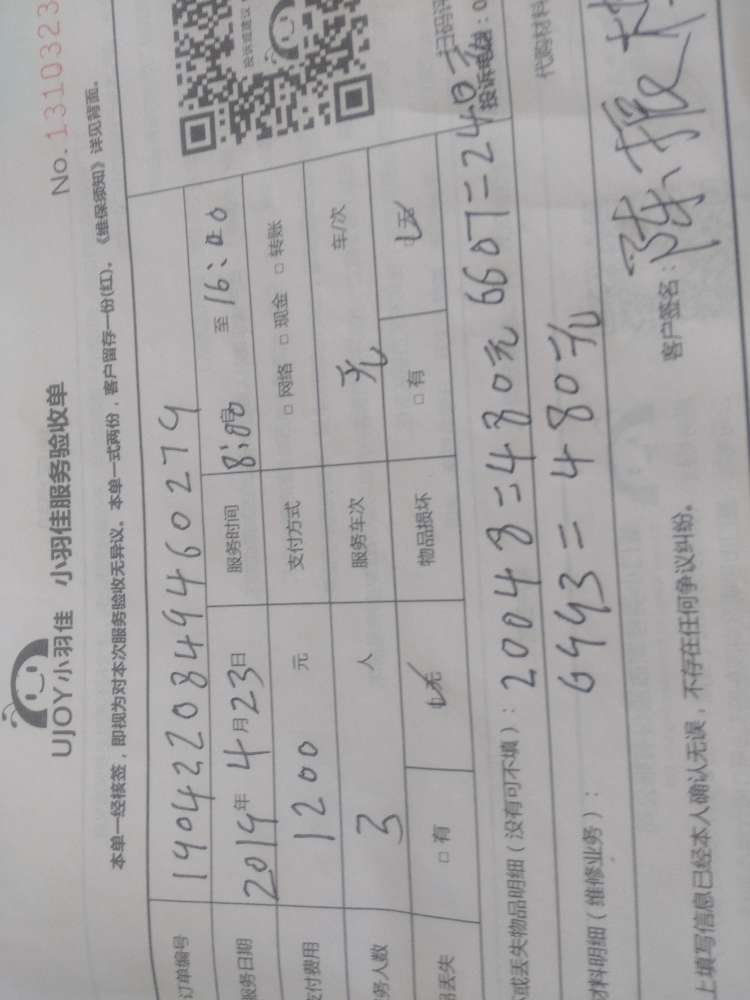 No.1310323
UJOY小羽佳 小羽佳服务验收单
本单一经核签，即视为对本次服务验收无异议。本单一式两份，客户留存一份(红)。《维保须知》详见背面。
订单编号 1904220849460279
服务日期 2019年4月23日 服务时间 8:00 至 16:00
支付费用 1200 元 支付方式 □网络 □现金 □转账
务人数 3 人 服务车次 无 车/次
品丢失 □有 无 物品损坏 □有 无
扫码评
投诉电话：0
或丢失物品明细（没有可不填）：20048=480元 6607=240元
6493=480元
材料明细（维修业务）：
代购材料
客户签名：陈振
上填写信息已经本人确认无误，不存在任何争议纠纷。